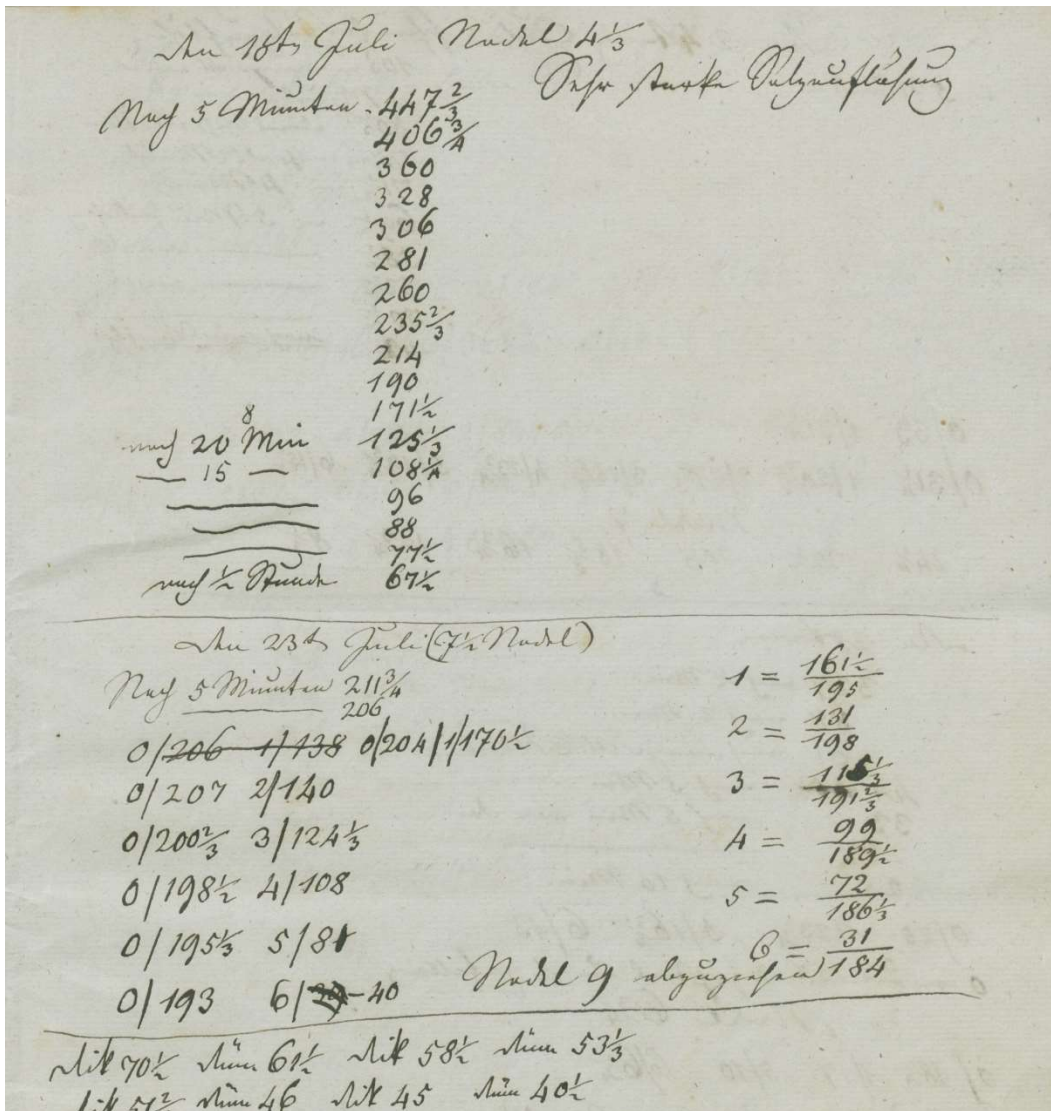 den 18ts Juli Nadel 4 1/3
Sehr starke Salzauflösung
Nach 5 Minuten - 447 2/3
406 3/4
360
328
306
281
260
235 2/3
214
190
171 1/2
8
nach 20 Min 125 1/3
— 15 — 108 1/4
96
88
77 1/2
nach 1/2 Stunde 67 1/2
den 23ts Juli (7 1/2 Nadel)
Nach 5 Minuten 211 3/4
206
0/206 1/138 0/204/1/170 1/2
0/207 2/140
0/200 2/3 3/124 1/3
0/198 1/2 4/108
0/195 1/3 5/81
0/193 6/ -40
1 = 161 1/2 / 195
2 = 131 / 198
3 = 115 1/3 / 191 2/3
4 = 99 / 189 1/2
5 = 72 / 186 1/3
6 = 31 / 184
Nadel 9 abzuziehen
dik 70 1/2 dün 61 1/2 dik 58 1/2 dün 53 1/3
dik 51 2/ dün 46 dik 45 dün 40 1/2